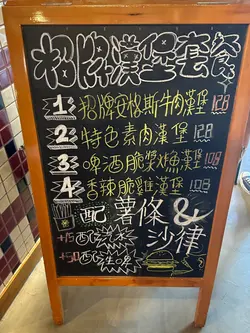 招牌漢堡套餐
1. 招牌安格斯牛肉漢堡 128
2. 特色素肉漢堡 128
3. 啤酒脆漿炸魚漢堡 108
4. 香辣脆雞漢堡 108
配 薯條 &
沙律
+15
+30